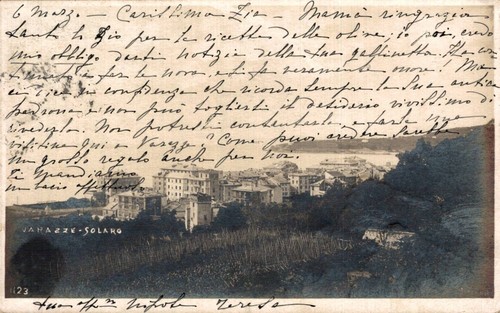 6 Marzo - Carissima Zia - Mamà ringrazia
tanto lo Zio per la ricetta delle olive; io poi, credo
mio obbligo darti notizia della tua gallinetta. Ha co
a fare le nova, e ti fa veramente onore! Ma
in confidenza che ricorda sempre la Sua antica
padrona e non può togliersi il desiderio vivissimo di
rivederla. Non potresti contentarla e farle una
visitina qui a Varazze? Come puoi credere sarebbe
un grosso regalo anche per noi.
Ti mandiamo
un bacio affettuoso
VARAZZE - SOLARO
1123
Tua aff.ma nipote Teresa